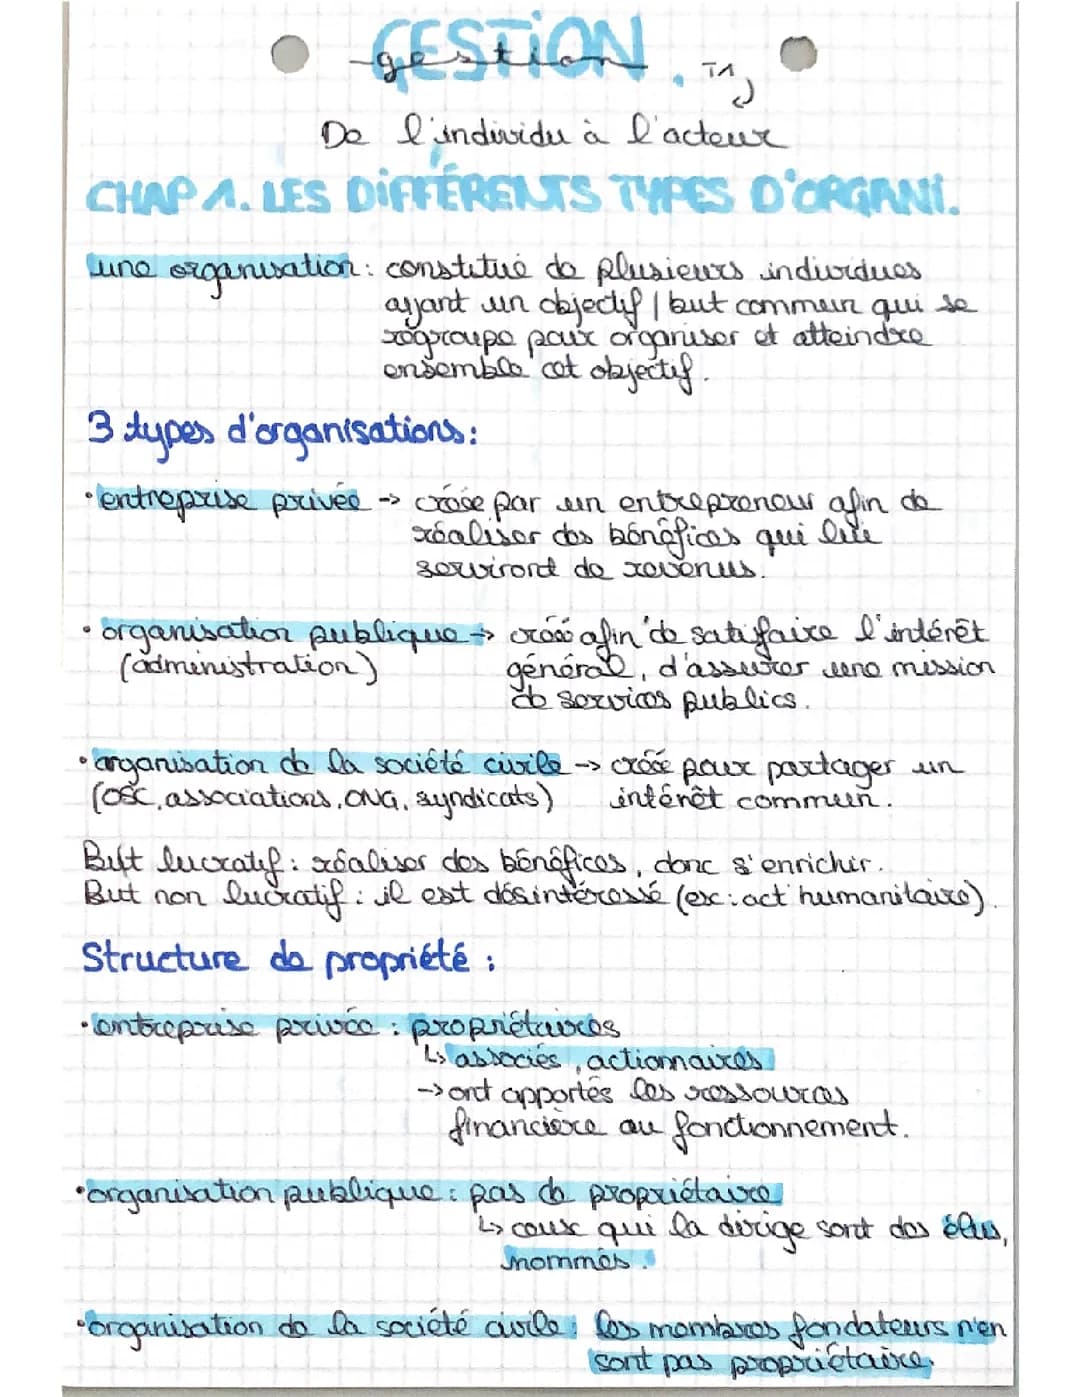 GESTION
gestion. T1
De l'individu à l'acteur
CHAP 1. LES DIFFÉRENTS TYPES D'ORGANI.
une organisation : constitué de plusieurs individues
ayant un objectif / but commun qui se
regroupe pour organiser et atteindre
ensemble cet objectif.
3 types d'organisations :
• entreprise privée -> créée par un entrepreneur afin de
réaliser des bénéfices qui lui
serviront de revenus.
• organisation publique -> créé afin de satifaire l'intérêt
(administration) général, d'assurer une mission
de services publics.
• organisation de la société civile -> créé pour partager un
(OSC, associations, ONG, syndicats) intérêt commun.
But lucratif : réaliser des bénéfices, donc s'enrichir.
But non lucratif : il est désintéressé (ex : act° humanitaire).
Structure de propriété :
• entreprise privée : propriétaires
↳ associés, actionnaires
-> ont apportés les ressources
financière au fonctionnement.
• organisation publique : pas de propriétaire
↳ ceux qui la dirige sont des élus,
nommés.
• organisation de la société civile : les membres fondateurs n'en
sont pas propriétaire.